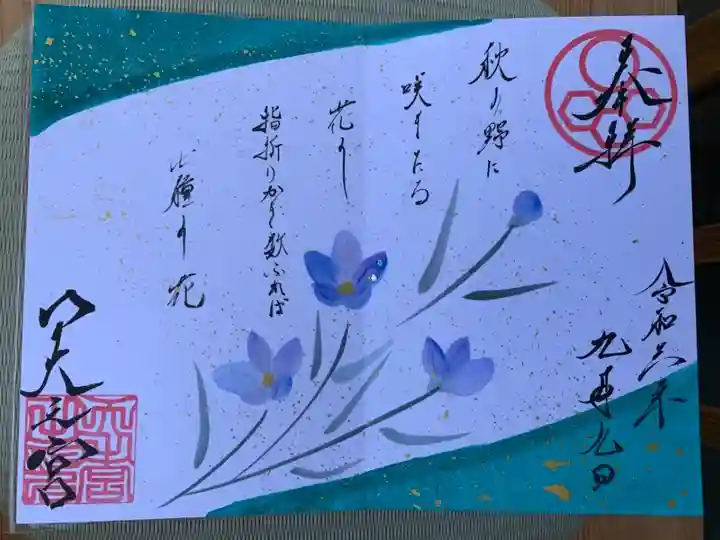 奉拝
令和六年
九月九日
秋の野に
咲きたる
花を
指折りかき数ふれば
七種の花
宮